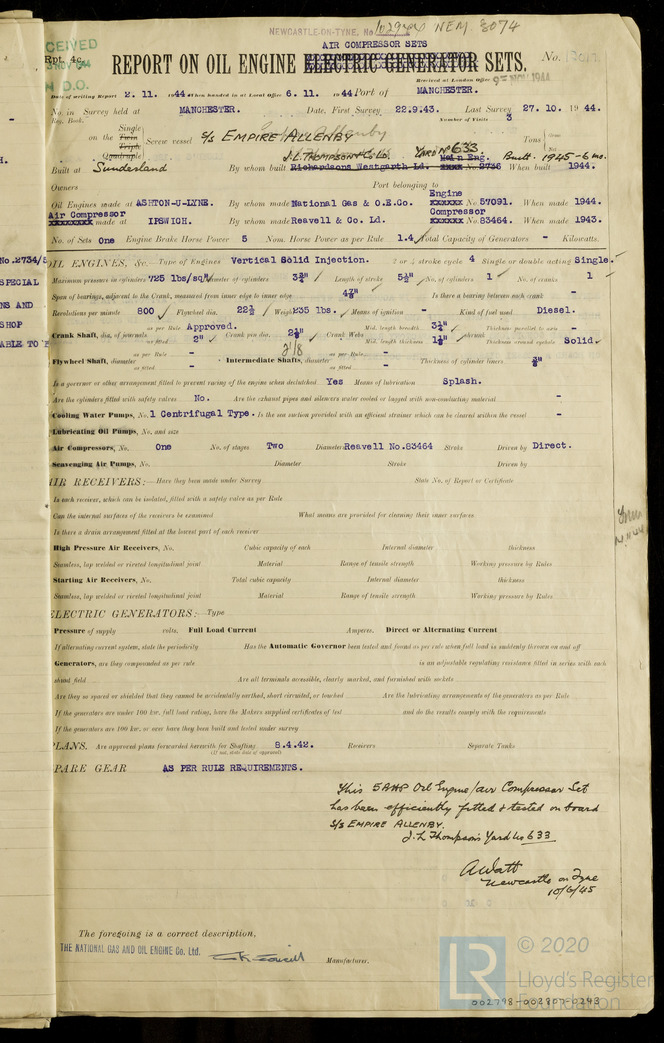 NEWCASTLE-ON-TYNE. No. 102944 NEM. 8074
RECEIVED
Rpt. 4c.
NOV 1944
D.O.
AIR COMPRESSOR SETS
REPORT ON OIL ENGINE ELECTRIC GENERATOR SETS. No.
Received at London Office 9 - NOV 1944
Date of writing Report 2. 11. 1944 When handed in at Local Office 6. 11. 1944 Port of MANCHESTER.
No. in Survey held at MANCHESTER. Date, First Survey 22.9.43. Last Survey 27. 10. 1944.
Reg. Book. Number of Visits 3
Single
on the Twin Screw vessel S/S EMPIRE ALLENBY Tons Gross Net
Triple
Quadruple
J.L. THOMPSON & Co LD. YARD No 633. Main Eng. Built - 1945 - 6 mo.
Built at Sunderland By whom built Richardsons Westgarth Ld. No. 2736 When built 1944.
Owners Port belonging to
Engine
Oil Engines made at ASHTON-U-LYNE. By whom made National Gas & O.E.Co. No. 57091. When made 1944.
Air Compressor Compressor
made at IPSWICH. By whom made Reavell & Co. Ld. No. 83464. When made 1943.
No. of Sets One Engine Brake Horse Power 5 Nom. Horse Power as per Rule 1.4 Total Capacity of Generators - Kilowatts.
No.2734/5
SPECIAL
NS AND
SHOP
ABLE TO
OIL ENGINES, &c.— Type of Engines Vertical Solid Injection. 2 or 4 stroke cycle 4 Single or double acting Single.
Maximum pressure in cylinders 725 lbs/sq" Diameter of cylinders 3¾" Length of stroke 5½" No. of cylinders 1 No. of cranks 1
Span of bearings, adjacent to the Crank, measured from inner edge to inner edge 4⅞" Is there a bearing between each crank -
Revolutions per minute 800 Flywheel dia. 22½ Weight 235 lbs. Means of ignition - Kind of fuel used Diesel.
Crank Shaft, dia. of journals as per Rule Approved. as fitted 2" Crank pin dia. 2⅛" Crank Webs Mid. length breadth 3¼" Mid. length thickness 1⅛" shrunk Thickness parallel to axis - Thickness around eyehole Solid.
2 1/8
Flywheel Shaft, diameter as per Rule - as fitted - Intermediate Shafts, diameter as per Rule - as fitted - Thickness of cylinder liners ⅜"
Is a governor or other arrangement fitted to prevent racing of the engine when declutched Yes Means of lubrication Splash.
Are the cylinders fitted with safety valves No. Are the exhaust pipes and silencers water cooled or lagged with non-conducting material -
Cooling Water Pumps, No. 1 Centrifugal Type. Is the sea suction provided with an efficient strainer which can be cleared within the vessel -
Lubricating Oil Pumps, No. and size
Air Compressors, No. One No. of stages Two Diameter Reavell No.83464 Stroke Driven by Direct.
Scavenging Air Pumps, No. Diameter Stroke Driven by
AIR RECEIVERS:— Have they been made under Survey State No. of Report or Certificate
Is each receiver, which can be isolated, fitted with a safety valve as per Rule
Can the internal surfaces of the receivers be examined What means are provided for cleaning their inner surfaces
Is there a drain arrangement fitted at the lowest part of each receiver
High Pressure Air Receivers, No. Cubic capacity of each Internal diameter thickness
Seamless, lap welded or riveted longitudinal joint Material Range of tensile strength Working pressure by Rules
Starting Air Receivers, No. Total cubic capacity Internal diameter thickness
Seamless, lap welded or riveted longitudinal joint Material Range of tensile strength Working pressure by Rules
ELECTRIC GENERATORS:— Type
Pressure of supply volts. Full Load Current Amperes. Direct or Alternating Current
If alternating current system, state the periodicity Has the Automatic Governor been tested and found as per rule when full load is suddenly thrown on and off
Generators, are they compounded as per rule is an adjustable regulating resistance fitted in series with each
shunt field Are all terminals accessible, clearly marked, and furnished with sockets
Are they so spaced or shielded that they cannot be accidentally earthed, short circuited, or touched Are the lubricating arrangements of the generators as per Rule
If the generators are under 100 kw. full load rating, have the Makers supplied certificates of test and do the results comply with the requirements
If the generators are 100 kw. or over have they been built and tested under survey
PLANS. Are approved plans forwarded herewith for Shafting 8.4.42. Receivers Separate Tanks
(If not, state date of approval)
SPARE GEAR AS PER RULE REQUIREMENTS.
This 5 BHP Oil Engine/air Compressor Set
has been efficiently fitted & tested on board
S/S EMPIRE ALLENBY.
J. L Thompson's Yard No 633
A Watt
Newcastle on Tyne
10/6/45
The foregoing is a correct description,
THE NATIONAL GAS AND OIL ENGINE Co. Ltd.
Manufacturer.
LR © 2020
Lloyd's Register
Foundation
002798-002807-0243